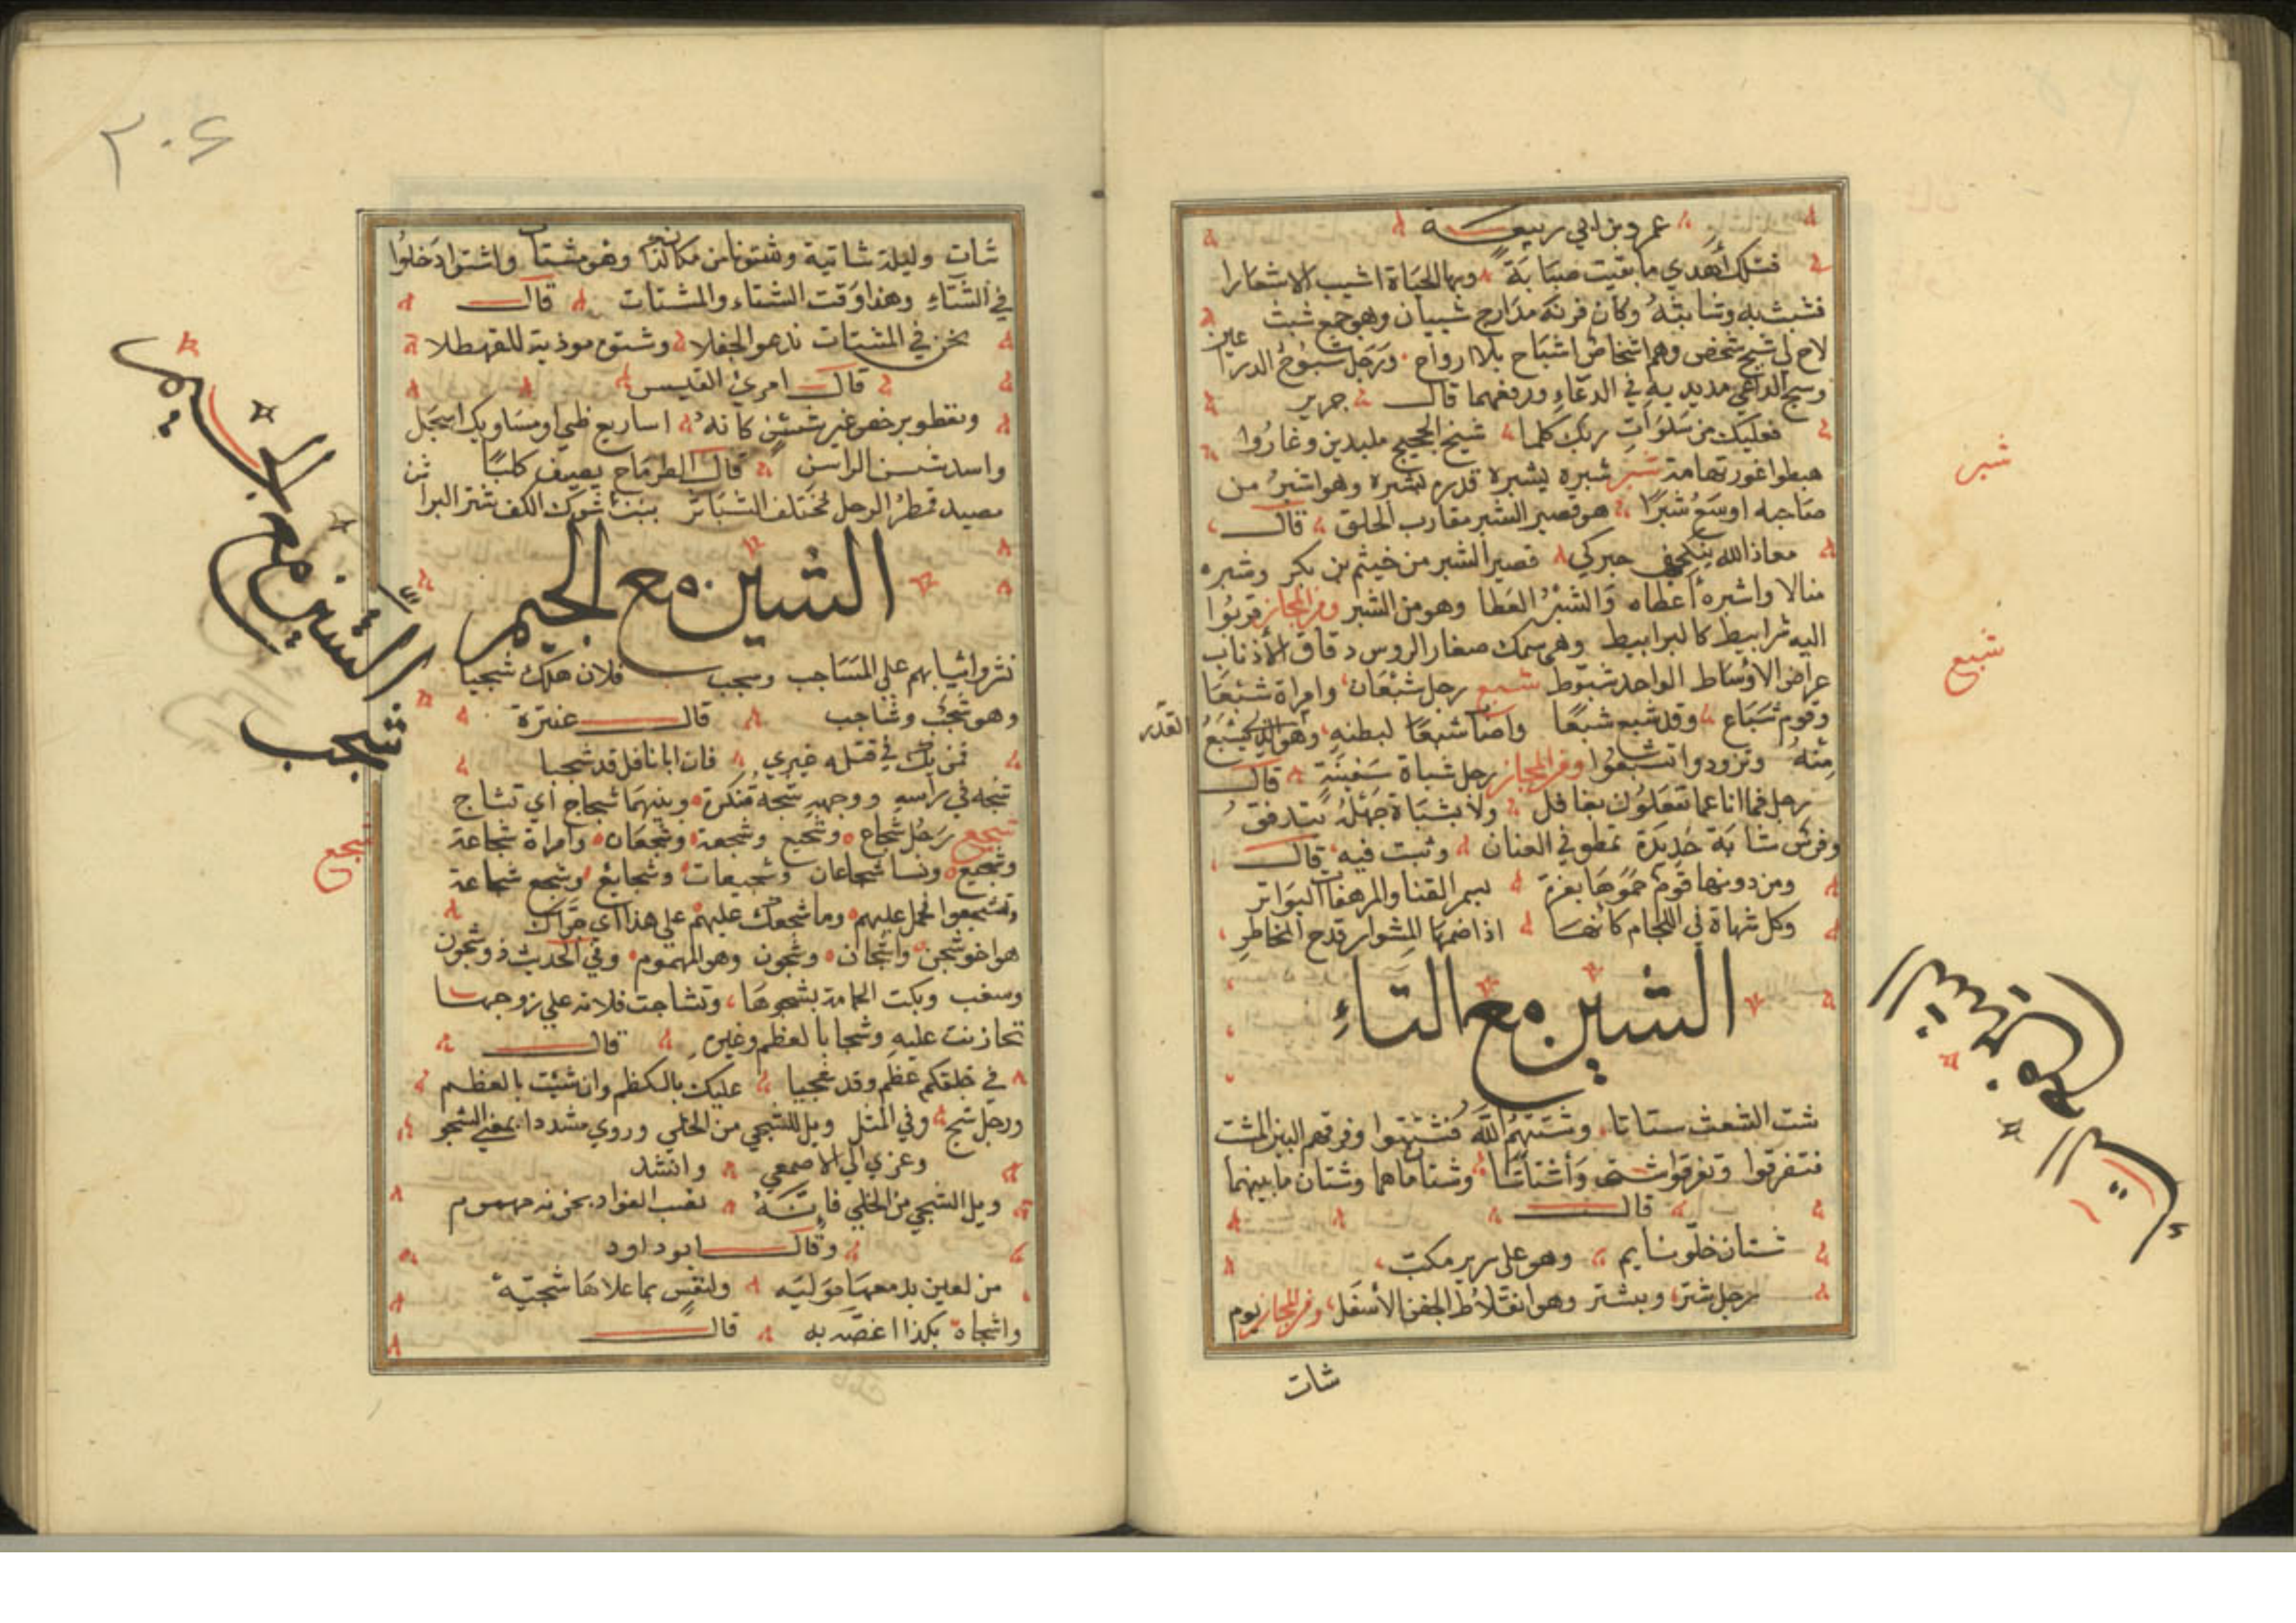 عمرو بن ابي ربيعة
فتلك أهدي ما بقيت صبابة وبها الحياة اشيب الاشعارا
فشبث به وشابثه وكان قرنه مدارج شبثان وهو جمع شبث
لاح لي شبح شخص وهم اشخاص اشباح بلا ارواح ورجل شبوح الذراعين
وشبح الداعي مد يديه في الدعاء ورفعهما قال جرير
فعليك من صلوات ربك كلما شبح الحجيج ملبدين وغاروا
هبطوا غور تهامة شبر شبره يشبره قدره بشبره وهو اشبر من
صاحبه اوسع شبرا هو قصير الشبر متقارب الخلق قال
معاذ الله ينكحني حبركي قصير الشبر من جشم بن بكر وشبره
مالا واشبره أعطاه والشبر العطا وهو من الشبر ومن المجاز قربوا
اليه شبابيط كالبرابيط وهي سمك صغار الروس دقاق الأذناب
عراض الاوساط الواحد شبوط شبع رجل شبعان وامرأة شبعا
وقوم شباع وقد شبع شبعا واصبا شبعا لبطنه وهو الذي يشبع القدر
منه وتزودوا تشبعوا ومن المجاز رجل شباة سفينة قال
رجل فما انا عما تفعلون بغافل ولا بشباة جهله يتدفق
وفرس شابة حديدة تمطو في العنان وثبت فيه قال
ومن دونها قوم حموها بعزة بسمر القنا والمرهفات البواتر
وكل شباة في اللجام كانها اذا ضمها المشوار قدح المخاطر
الشين مع التاء
شت الشعث ستاتا وشتتهم الله فتشتتوا وفرقهم البين المشت
فتفرقوا وتفرقوا شتى وأشتاتا وشتا ماهما وشتان ما بينهما
قال
شتان خلو نايم وهو على سرير مكب
رجل شتر وبه شتر وهو انقلاب الجفن الأسفل ومن المجاز يوم
شات
شبر
شبع
الشين مع
التاء
٢٠٤
شات وليلة شاتية وشتونا من مكان كذا وهو مشتات واشتوا دخلوا
في الشتاء وهذا وقت الشتاء والمشتات قال
نحن في المشتات ندعو الجفلا
قال امرئ القيس
وتعطو برخص غير شثن كأنه اساريع ظبي او مساويك اسحل
واسد شثن البراثن قال الطرماح يصف كلبا
الشين مع الجيم
نثروا ثيابهم على المشاجب وشجب فلان هلك شجبا
وهو شجب وشاجب قال عنترة
فمن يك في قتله يمتري فان ابا نوفل قد شجبا
شجه في راسه ووجهه شجة منكرة وبينهما شجاج أي تشاج
شجع رجل شجاع وشجيع وشجعة وشجعان وامراة شجاعة
وشجيع ونسا شجاعات وشجيعات وشجايع وشجع شجاعة
وتشجعوا فحمل عليهم وما شجعك عليهم على هذا أي جرأك
هو اخو شجن واشجان وشجون وهو المهموم وفي الحديث ذو شجون
وشعب وبكت الحمامة بشجوها وتشاجت فلانة على زوجها
تحازنت عليه وشجا بالعظم وغيره قال
في حلقكم عظم وقد شجينا عليك بالكظم وان شيت بالعظم
ورجل شج وفي المثل ويل للشجي من الخلي وروي مشددا بمعنى الشجو
وعزي الى الاصمعي وانشد
ويل الشجي من الخلي فانه نصب الفواد بحزنه مهموم
وقال ابو داود
من لعين بدمعها موليه ولنفس بما علاها شجيه
واشجاه بكذا اغصه به قال
الشين مع
الجيم
شجب
شجع